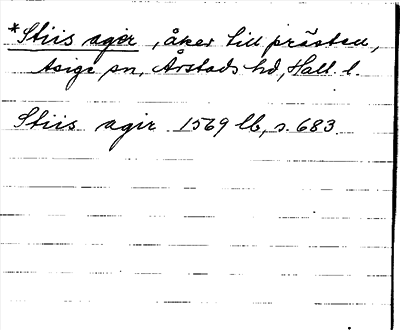 *Stiis agir, åker till prästeb.,
Asige sn, Årstads hd, Hall. l.
Stiis agir 1569 lb, s. 683